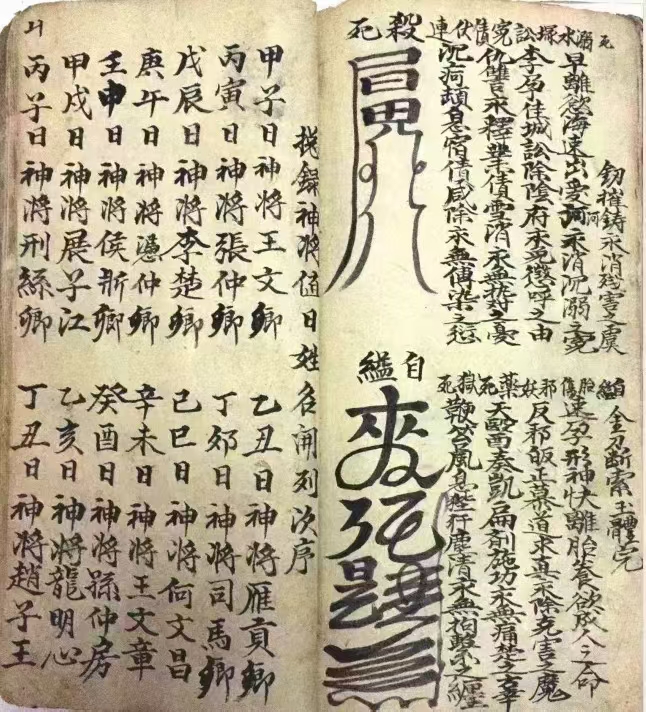 釰摧鋳永消残害之虞
死
溺水 早離慾海速出愛河永消沉溺之冤
塚訟 李居佳城訟除陰府永免懲呼之由
冤債 仇讐永釋業債雪消永無執持之憂
伏連 沉疴頓息宿債咸除永無傳染之愆
殺死
自縊 金刃断索玉體完
胎傷 速孕形神快離胎養欲成人之命
邪妖 反邪皈正慕道求真永除克害之魔
藥死 天醫奏凱扁劑施功永無痛楚之辜
獄死 鞭笞風息陛犴塵清永無枷鎖之纏
自縊
錄神將值日姓名開列次序
甲子日神將王文卿 乙丑日神將雁貢卿
丙寅日神將張仲卿 丁夘日神將司馬卿
戊辰日神將李楚卿 己巳日神將何文昌
庚午日神將憑仲卿 辛未日神將王文章
壬申日神將侯新卿 癸酉日神將孫仲房
甲戌日神將展子江 乙亥日神將龍明心
丙子日神將刑絲卿 丁丑日神將趙子王